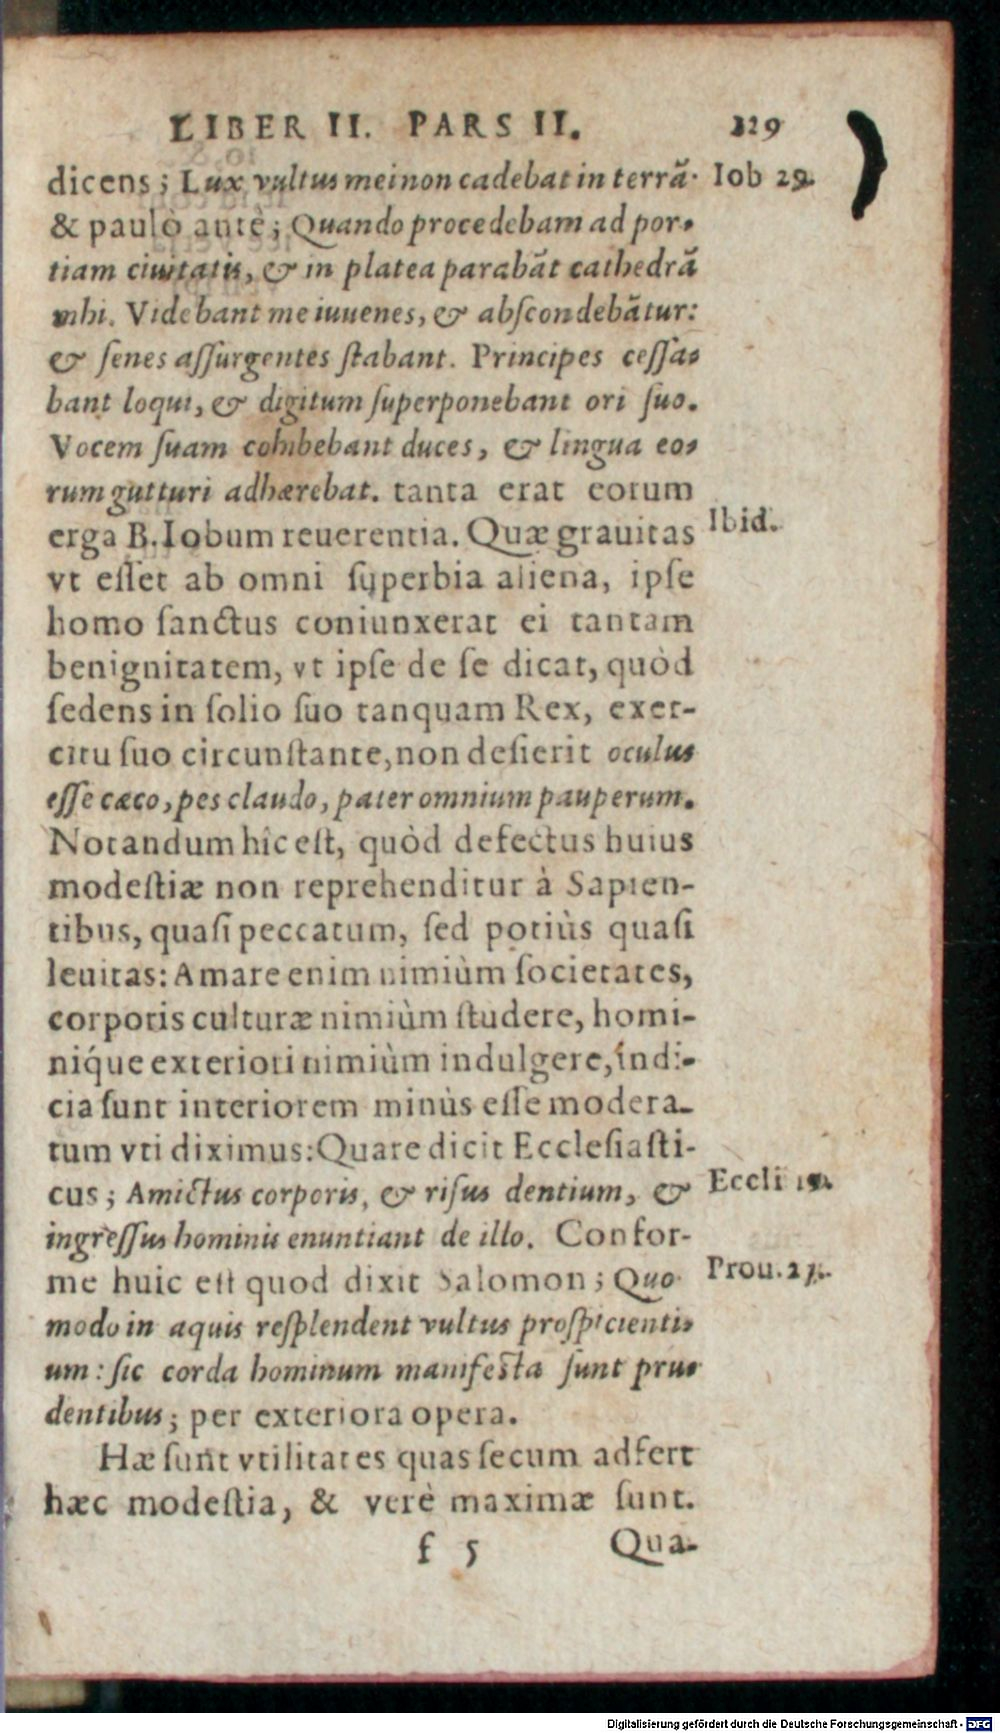 LIBER II. PARS II. 129
dicens; Lux vultus mei non cadebat in terrã. Iob 29.
& paulò antè; Quando procedebam ad por-
tiam ciuitatis, & in platea parabãt cathedrã
mihi. Videbant me iuuenes, & abſcondebãtur:
& ſenes aſſurgentes ſtabant. Principes ceſſa-
bant loqui, & digitum ſuperponebant ori ſuo.
Vocem ſuam cohibebant duces, & lingua eo-
rum gutturi adhærebat. tanta erat eorum
erga B. Iobum reuerentia. Quæ grauitas Ibid.
vt eſſet ab omni ſuperbia aliena, ipſe
homo ſanctus coniunxerat ei tantam
benignitatem, vt ipſe de ſe dicat, quòd
ſedens in ſolio ſuo tanquam Rex, exer-
citu ſuo circunſtante, non deſierit oculus
eſſe cæco, pes claudo, pater omnium pauperum.
Notandum hîc eſt, quòd defectus huius
modeſtiæ non reprehenditur à Sapien-
tibus, quaſi peccatum, ſed potiùs quaſi
leuitas: Amare enim nimiùm ſocietates,
corporis culturæ nimiùm ſtudere, homi-
niq́ue exteriori nimiùm indulgere, indi-
cia ſunt interiorem minùs eſſe modera-
tum vti diximus: Quare dicit Eccleſiaſti-
cus; Amictus corporis, & riſus dentium, & Eccli 19.
ingreſſus hominis enuntiant de illo. Confor-
me huic eſt quod dixit Salomon; Quo- Prou. 27.
modo in aquis reſplendent vultus proſpicienti-
um: ſic corda hominum manifeſta ſunt pru-
dentibus; per exteriora opera.
Hæ ſunt vtilitates quas ſecum adfert
hæc modeſtia, & verè maximæ ſunt.
f 5 Qua-
Digitalisierung gefördert durch die Deutsche Forschungsgemeinschaft - DFG